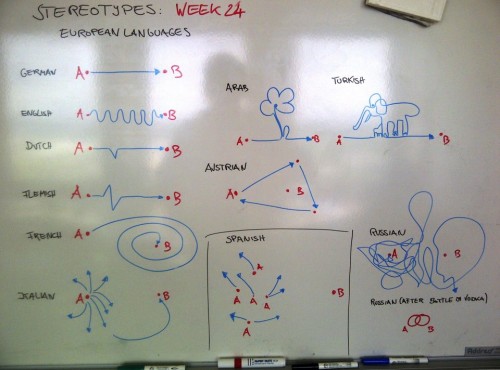 STEREOTYPES: WEEK 24
EUROPEAN LANGUAGES
GERMAN A B
ENGLISH A B
DUTCH A B
FLEMISH A B
FRENCH A B
ITALIAN A B
ARAB
A B
TURKISH
A B
AUSTRIAN
A B
SPANISH
A
A A A
A
B
RUSSIAN
A B
RUSSIAN (AFTER BOTTLE OF VODKA)
A B